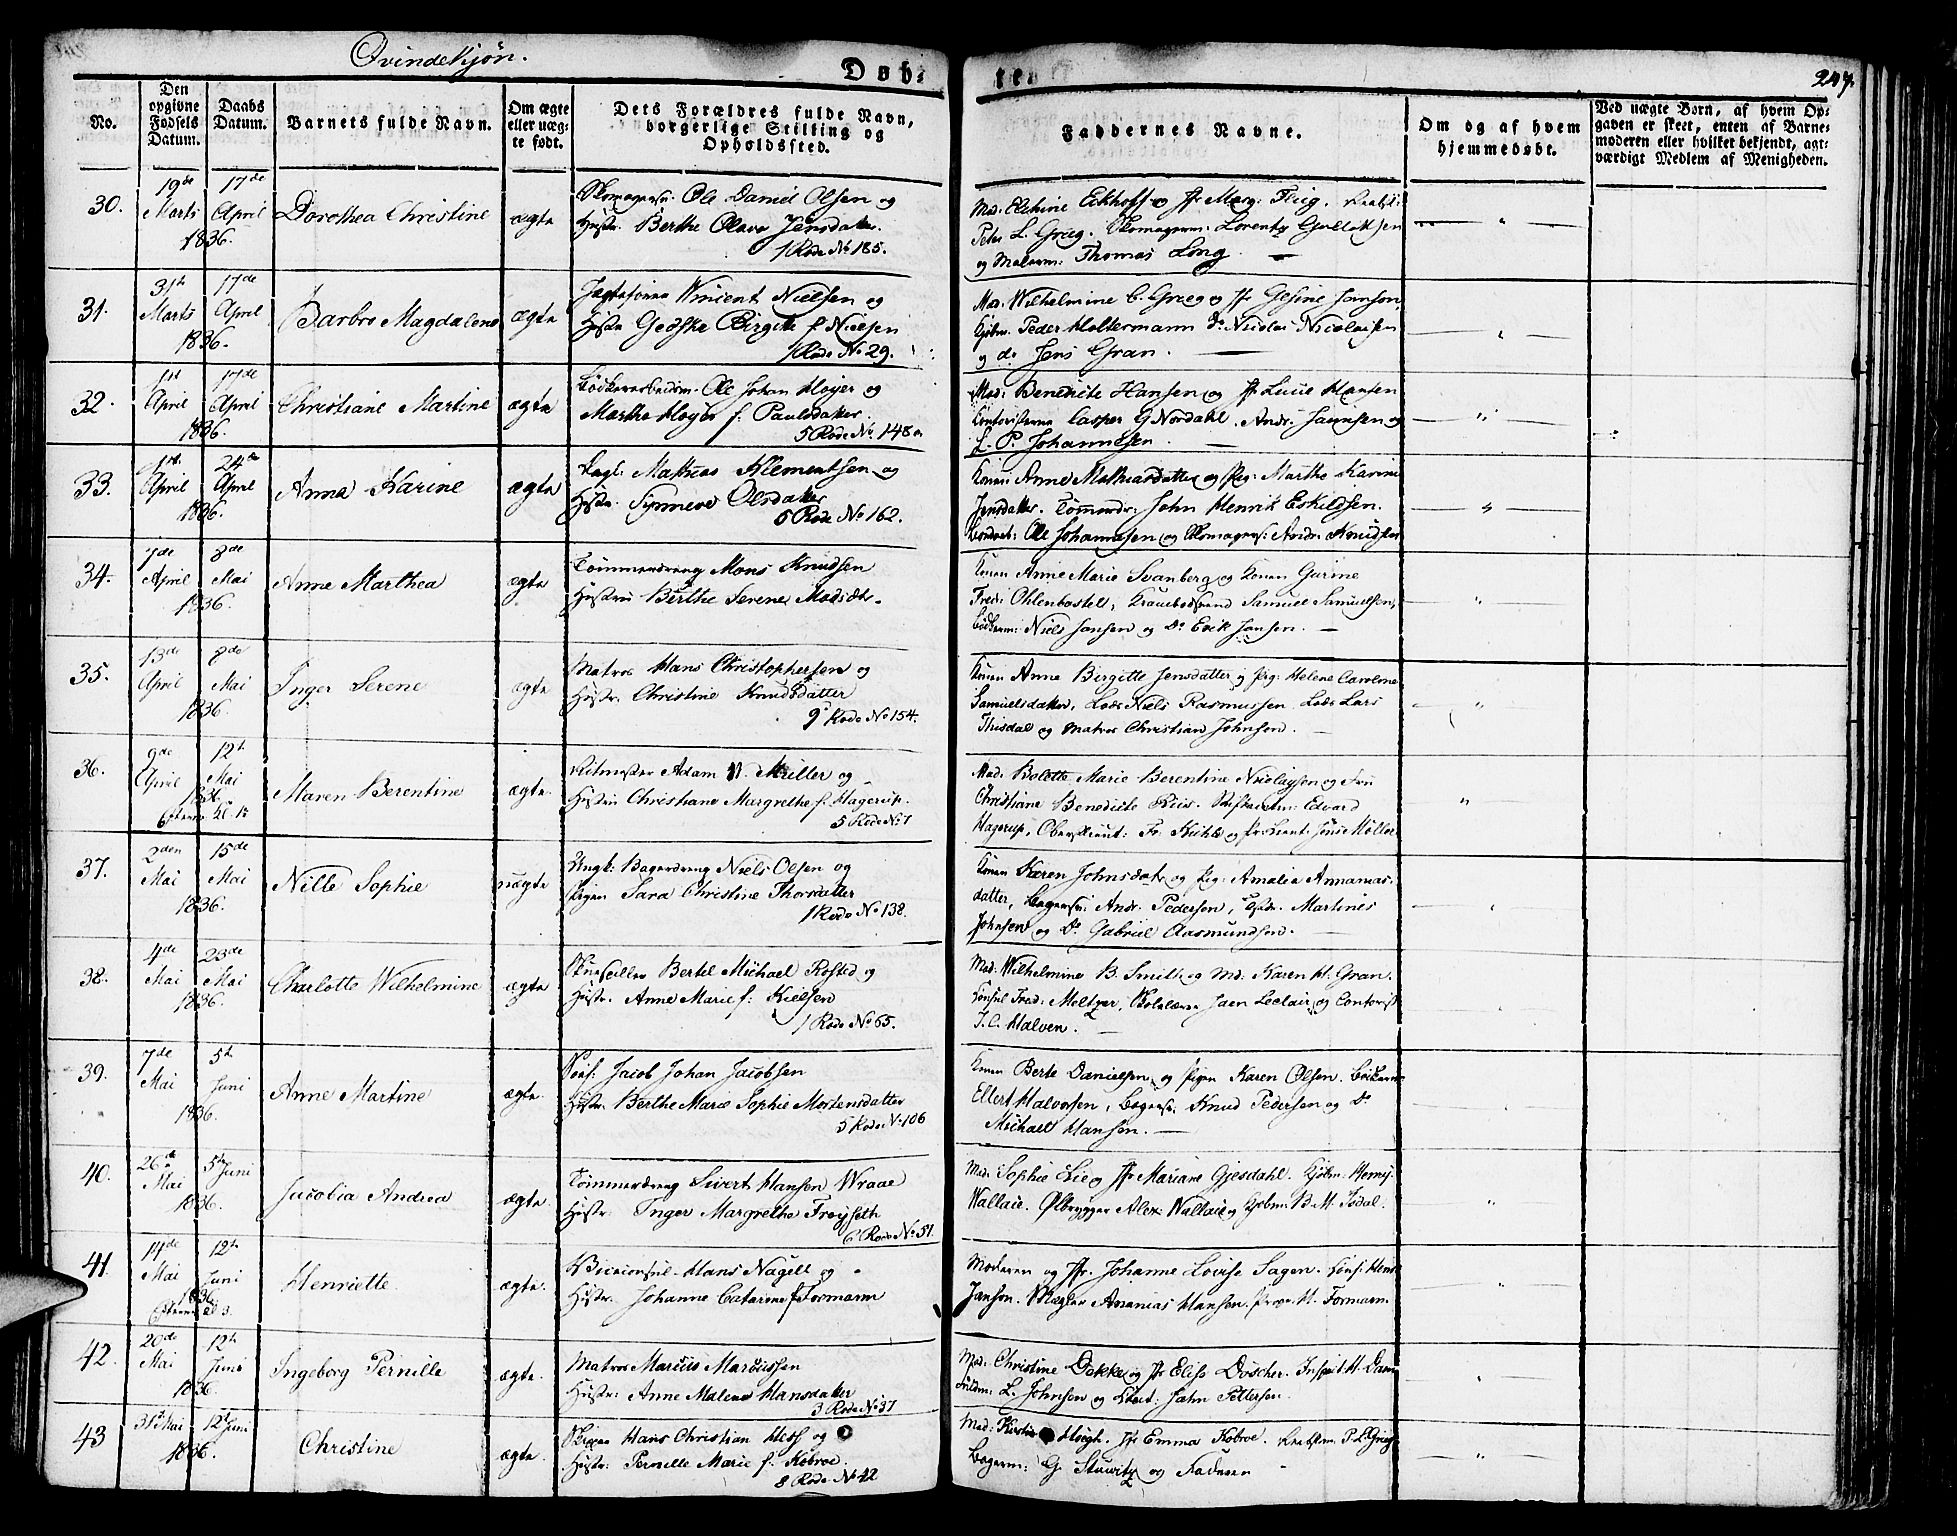 Qvindekjøn.
Døbte
247.
No.
Den opgivne Fødsels Datum.
Daabs Datum.
Barnets fulde Navn.
Om ægte eller uægte født.
Dets Forældres fulde Navn, borgerlige Stilling og Opholdssted.
Faddernes Navne.
Om og af hvem hjemmedøbt.
Ved uægte Børn, af hvem Opgaven er skeet, enten af Barnemoderen eller hvilket bekjendt, agtværdigt Medlem af Menigheden.
30. 19de Marts 17de April 1836. Dorothea Christine ægte
Ole Daniel Olsen og
Hustr. Berthe Olava Jensdatter.
1 Rode No 185.
Mad: Elchine Eckhoff og Jfr Marg. Flug.
Peter L. Grieg. Skomagerm: Lorentz Gulliksen
og Malerm: Thomas Long
31. 31te Marts 17de April 1836. Barbro Magdalene ægte
Vincent Nielsen og
Hustr. Gedske Birgitte f. Nielsen
1 Rode No 29.
Mad. Wilhelmine C. Grieg og Jfr Gesine Janson,
Kjøbm. Peder Holtermann Do Nicolai Nicolaisen
og do Jens Gran.
32. 1ste April 17de April 1836. Christiane Martine ægte
Ole Johan Høyer og
Marthe Høyer f. Paulsdatter.
5 Rode No 148a
Mad: Benedicte Hansen og Jfr Lucie Hansen
Contoristerne Casper G Nordahl, Andr. Jannsen og
L. P. Johannesen
33. 1ste April 24de April 1836. Anna Karine ægte
Mathias Klementsen og
Hustr. Synneve Olsdatter
5 Rode No 162.
Konen Anne Mathiasdatter og Pig: Marthe Karine
Jensdatter. Tømmerdr: John Henrik Eskildsen.
Ole Johannesen og Skomagers: Andr: Knudsen
34. 7de April 8de Mai 1836. Anne Marthea ægte
Tømmerdreng Mons Knudsen
Hustru Berthe Serene Madsdtr.
Konen Anne Marie Svanberg og Konen Gurine
Fred: Ohlenbostel, Samuel Samuelsen,
Bødkerm: Niels Jansen og Do Erik Jansen.
35. 13de April 8de Mai 1836. Inger Serene ægte
Matros Hans Christophersen og
Hustr. Christine Knudsdatter
9 Rode No 154.
Konen Anne Birgitte Jensdatter og Pig: Helene Carolene
Samuelsdatter, Lods Niels Rasmussen Lods Lars
Thisdal og Matros Christian Johnsen.
36. 9de April 12te Mai 1836. Maren Berentine ægte.
Ritmester Adam Müller og
Hustru Christiane Margrethe f. Hagerup.
5 Rode No 1
Mad. Bolette Marie Berentine Nicolaysen og Fru
Christiane Benedicte Riis. Edvard
Hagerup, Oberstlieut: Fr. Kuhle og Pr. Lieut. Jens Møller
37. 2den Mai 15de Mai 1836. Nille Sophie uægte
Ungk: Bagerdreng Niels Olsen og
Pigen Sara Christine Thorsdatter
1 Rode No 138.
Konen Karen Johnsdatr og Pig: Amalia Annanias-
datter, Bagersv: Andr. Pedersen, Martines
Johnsen og Do Gabriel Aasmundsen.
38. 4de Mai 23de Mai 1836. Charlotte Wilhelmine ægte
Skuespiller Bertel Michael Rosted og
Hustr. Anne Marie f: Kielsen
1 Rode No 65.
Mad: Wilhelmine B. Smith og Md: Karen H. Gran.
Consul Fred: Meltzer, Jaen Leclair og Contorist
J. C. Halven.
39. 7de Mai 5te Juni 1836. Anne Martine ægte.
Jacob Johan Jacobsen
Hustr: Berthe Marie Sophie Mortensdatter
5 Rode No 106
Konen Berte Danielsen og Pigen Karen Olsen. Bødkerm
Ellert Halvorsen, Bagersv: Knud Pedersen og Do
Michael Hansen.
40. 26de Mai 5te Juni 1836. Jacobia Andrea ægte.
Tømmerdreng Sivert Hansen Wraae
Hustr. Inger Margrethe Frøyseth
6 Rode No 51.
Mad: Sophie Lie og Jfr Mariane Gjesdahl. Kjøbm: Henrij
Wallace. Ølbrygger Alex: Wallace og Kjøbm: B. M. Isdal.
41. 14de Mai 12te Juni 1836. Henriette ægte.
Hans Nagell og
Hustr. Johanne Catarine f. Formann
Moderen og Jfr. Johanne Lovise Sagen. Cons: Henr
Janson. Mægler Ananias Hansen. H. Formann.
42. 20de Mai 12te Juni 1836. Ingeborg Pernille ægte.
Matros Marcus Marcussen
Hustr: Anne Malene Hansdatter
3 Rode No 37
Mad: Christine Dekke og Jfr Elise Döscher. Inspect H. Dam
L. Johnsen og Lieut: Jahn Pettersen.
43 31te Mai 12te Juni 1836. Christine ægte.
Hans Christian Hess og
Hustr. Pernille Marie f. Kobroe.
8 Rode No 42
Mad: Høigh. Jfr Emma Kobroe. P. L. Grieg
Bagerm: G. Stuwitz og Faderen